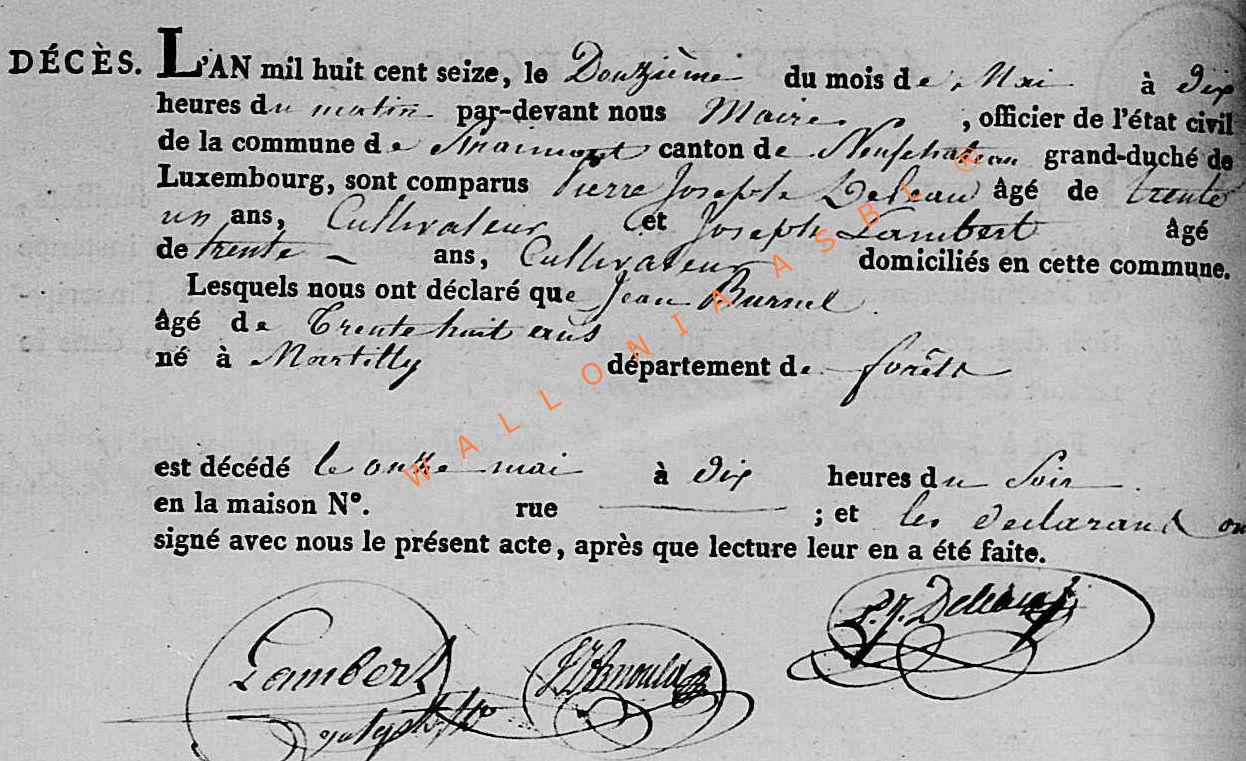 DÉCÈS. L'AN mil huit cent seize, le Douzième du mois de Mai à dix
heures du matin par-devant nous Maire, officier de l'état civil
de la commune de Straimont canton de Neufchateau grand-duché de
Luxembourg, sont comparus Pierre Joseph Deleau âgé de trente
un ans, Cultivateur et Joseph Lambert âgé
de trente ans, Cultivateur domiciliés en cette commune.
Lesquels nous ont déclaré que Jean Burnel
âgé de Trente huit ans
né à Martilly département de forêts
est décédé le onze mai à dix heures du Soir
en la maison N°. rue ; et les declarand on
signé avec nous le présent acte, après que lecture leur en a été faite.
P. J. Deleau
Lambert
WALLONIA ASBL ®